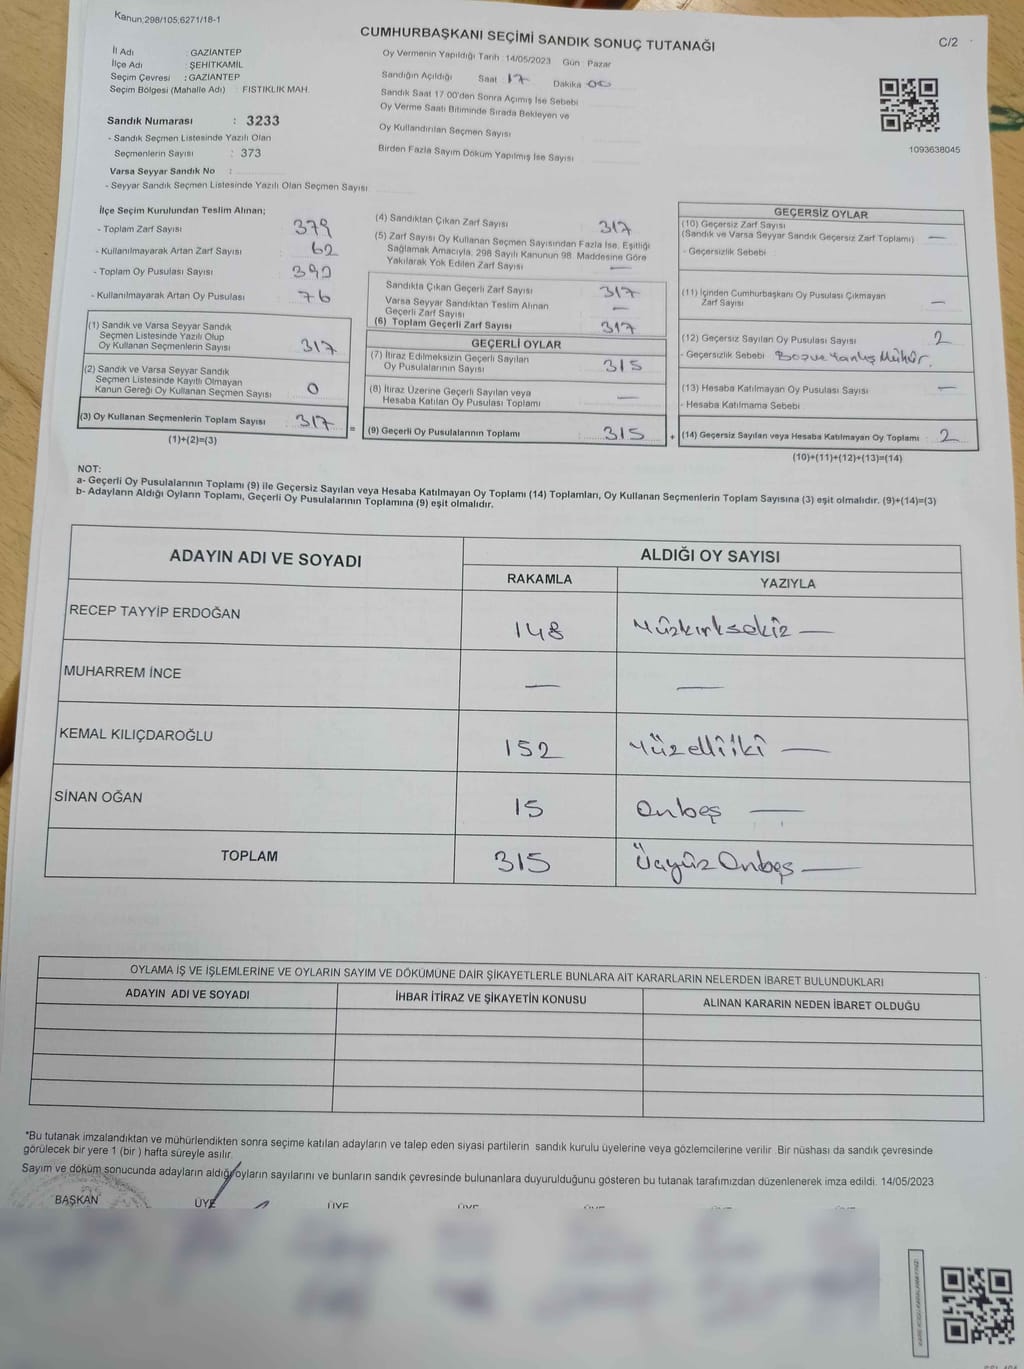 Kanun;298/105,6271/18-1
CUMHURBAŞKANI SEÇİMİ SANDIK SONUÇ TUTANAĞI
C/2
İl Adı : GAZİANTEP
İlçe Adı : ŞEHİTKAMİL
Seçim Çevresi : GAZİANTEP
Seçim Bölgesi (Mahalle Adı) : FISTIKLIK MAH.
Sandık Numarası : 3233
- Sandık Seçmen Listesinde Yazılı Olan
Seçmenlerin Sayısı : 373
Varsa Seyyar Sandık No :
- Seyyar Sandık Seçmen Listesinde Yazılı Olan Seçmen Sayısı
Oy Vermenin Yapıldığı Tarih :14/05/2023 Gün : Pazar
Sandığın Açıldığı Saat : 17 Dakika : 00
Sandık Saat 17:00'den Sonra Açılmış İse Sebebi
Oy Verme Saati Bitiminde Sırada Bekleyen ve
Oy Kullandırılan Seçmen Sayısı
Birden Fazla Sayım Döküm Yapılmış İse Sayısı
1093638045
İlçe Seçim Kurulundan Teslim Alınan;
- Toplam Zarf Sayısı : 379
- Kullanılmayarak Artan Zarf Sayısı : 62
- Toplam Oy Pusulası Sayısı
- Kullanılmayarak Artan Oy Pusulası : 76
(1) Sandık ve Varsa Seyyar Sandık
Seçmen Listesinde Yazılı Olup
Oy Kullanan Seçmenlerin Sayısı 317
(2) Sandık ve Varsa Seyyar Sandık
Seçmen Listesinde Kayıtlı Olmayan
Kanun Gereği Oy Kullanan Seçmen Sayısı 0
(3) Oy Kullanan Seçmenlerin Toplam Sayısı 317
(1)+(2)=(3)
(4) Sandıktan Çıkan Zarf Sayısı : 317
(5) Zarf Sayısı Oy Kullanan Seçmen Sayısından Fazla İse, Eşitliği
Sağlamak Amacıyla, 298 Sayılı Kanunun 98. Maddesine Göre
Yakılarak Yok Edilen Zarf Sayısı —
Sandıkta Çıkan Geçerli Zarf Sayısı : 317
Varsa Seyyar Sandıktan Teslim Alınan
Geçerli Zarf Sayısı —
(6) Toplam Geçerli Zarf Sayısı 317
GEÇERLİ OYLAR
(7) İtiraz Edilmeksizin Geçerli Sayılan
Oy Pusulalarının Sayısı 315
(8) İtiraz Üzerine Geçerli Sayılan veya
Hesaba Katılan Oy Pusulası Toplamı —
(9) Geçerli Oy Pusulalarının Toplamı 315
= +
GEÇERSİZ OYLAR
(10) Geçersiz Zarf Sayısı
(Sandık ve Varsa Seyyar Sandık Geçersiz Zarf Toplamı) —
- Geçersizlik Sebebi :
(11) İçinden Cumhurbaşkanı Oy Pusulası Çıkmayan
Zarf Sayısı —
(12) Geçersiz Sayılan Oy Pusulası Sayısı 2
- Geçersizlik Sebebi : Boş ve Yanlış Mühür.
(13) Hesaba Katılmayan Oy Pusulası Sayısı —
- Hesaba Katılmama Sebebi
(14) Geçersiz Sayılan veya Hesaba Katılmayan Oy Toplamı : 2
(10)+(11)+(12)+(13)=(14)
NOT:
a- Geçerli Oy Pusulalarının Toplamı (9) ile Geçersiz Sayılan veya Hesaba Katılmayan Oy Toplamı (14) Toplamları, Oy Kullanan Seçmenlerin Toplam Sayısına (3) eşit olmalıdır. (9)+(14)=(3)
b- Adayların Aldığı Oyların Toplamı, Geçerli Oy Pusulalarının Toplamına (9) eşit olmalıdır.
ADAYIN ADI VE SOYADI ALDIĞI OY SAYISI
RAKAMLA YAZIYLA
RECEP TAYYİP ERDOĞAN 148 Yüzkırksekiz —
MUHARREM İNCE — —
KEMAL KILIÇDAROĞLU 152 Yüzelliiki —
SİNAN OĞAN 15 Onbeş —
TOPLAM 315 Üçyüz Onbeş —
OYLAMA İŞ VE İŞLEMLERİNE VE OYLARIN SAYIM VE DÖKÜMÜNE DAİR ŞİKAYETLERLE BUNLARA AİT KARARLARIN NELERDEN İBARET BULUNDUKLARI
ADAYIN ADI VE SOYADI İHBAR İTİRAZ VE ŞİKAYETİN KONUSU ALINAN KARARIN NEDEN İBARET OLDUĞU
*Bu tutanak imzalandıktan ve mühürlendikten sonra seçime katılan adayların ve talep eden siyasi partilerin sandık kurulu üyelerine veya gözlemcilerine verilir .Bir nüshası da sandık çevresinde
görülecek bir yere 1 (bir ) hafta süreyle asılır.
Sayım ve döküm sonucunda adayların aldığı oyların sayılarını ve bunların sandık çevresinde bulunanlara duyurulduğunu gösteren bu tutanak tarafımızdan düzenlenerek imza edildi. 14/05/2023
BAŞKAN ÜYE ÜYE